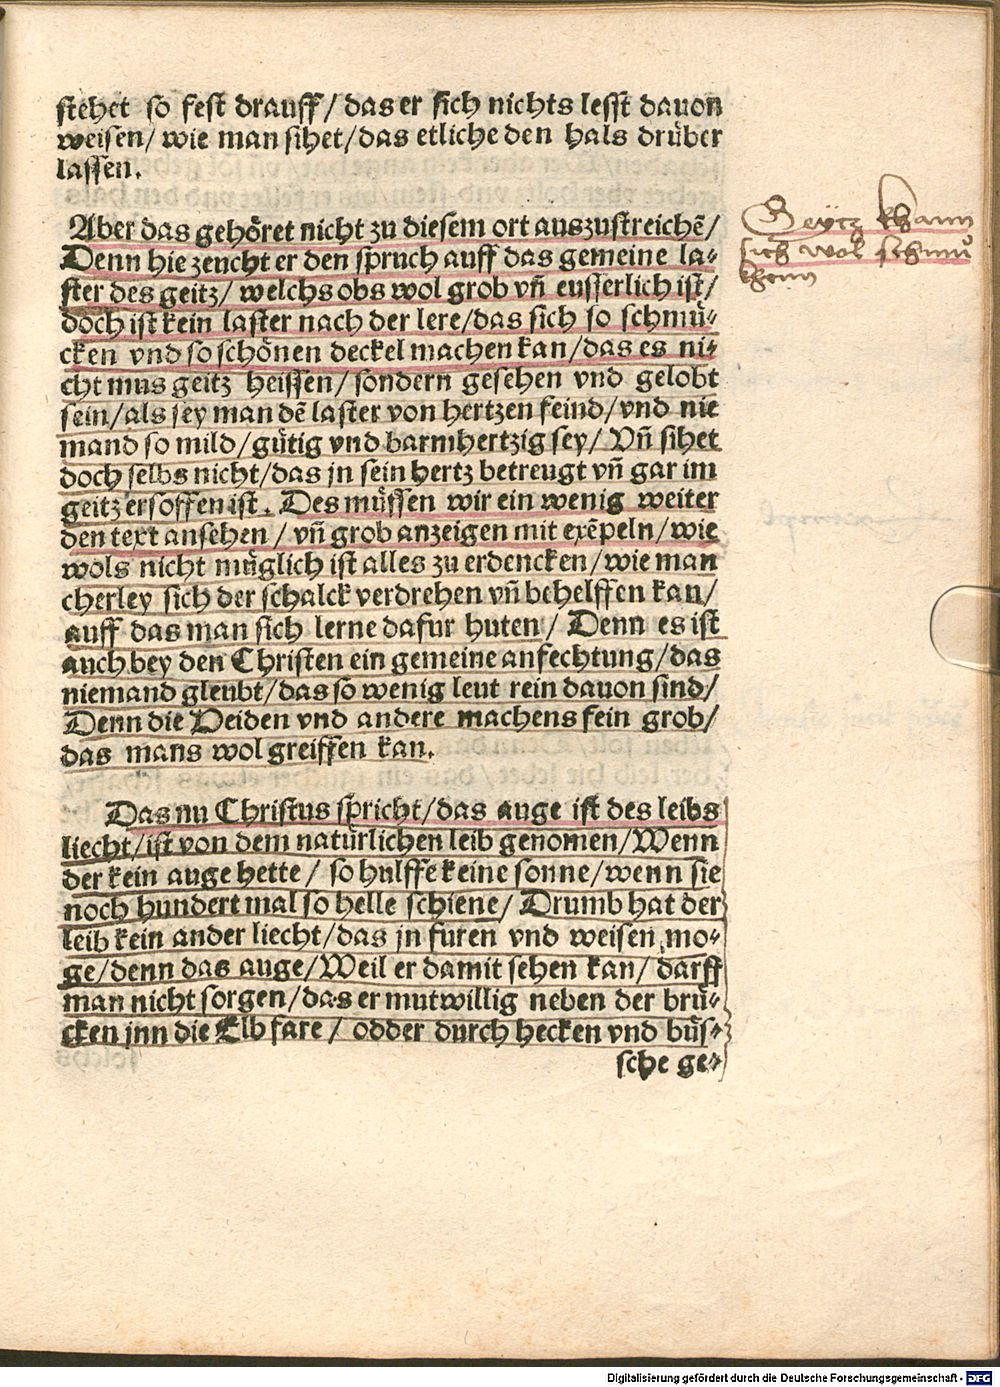 stehet so fest drauff/das er sich nichts lesst dauon
weisen/wie man sihet/das etliche den hals drüber
lassen.
Aber das gehöret nicht zu diesem ort auszustreichẽ/
Denn hie zeucht er den spruch auff das gemeine la-
ster des geitz/welchs obs wol grob vñ eusserlich ist/
doch ist kein laster nach der lere/das sich so schmü-
cken vnd so schönen deckel machen kan/das es ni-
cht mus geitz heissen/sondern gesehen vnd gelobt
sein/als sey man dẽ laster von hertzen feind/vnd nie
mand so mild/gütig vnd barmhertzig sey/Vñ sihet
doch selbs nicht/das jn sein hertz betreugt vñ gar im
geitz ersoffen ist. Des müssen wir ein wenig weiter
den text ansehen/vñ grob anzeigen mit exẽpeln/wie
wols nicht müglich ist alles zu erdencken/wie man
cherley sich der schalck verdrehen vñ behelffen kan/
auff das man sich lerne dafur huten/Denn es ist
auch bey den Christen ein gemeine anfechtung/das
niemand gleubt/das so wenig leut rein dauon sind/
Denn die Heiden vnd andere machens fein grob/
das mans wol greiffen kan.
Das nu Christus spricht/das auge ist des leibs
liecht/ist von dem natürlichen leib genomen/Wenn
der kein auge hette/so hulffe keine sonne/wenn sie
noch hundert mal so helle schiene/Drumb hat der
leib kein ander liecht/das jn füren vnd weisen mo-
ge/denn das auge/Weil er damit sehen kan/darff
man nicht sorgen/das er mutwillig neben der brü-
cken jnn die Elb fare/odder durch hecken vnd büs-
sche ge-
Geytz khann
sich wol schmu
khenn
Digitalisierung gefördert durch die Deutsche Forschungsgemeinschaft - DFG